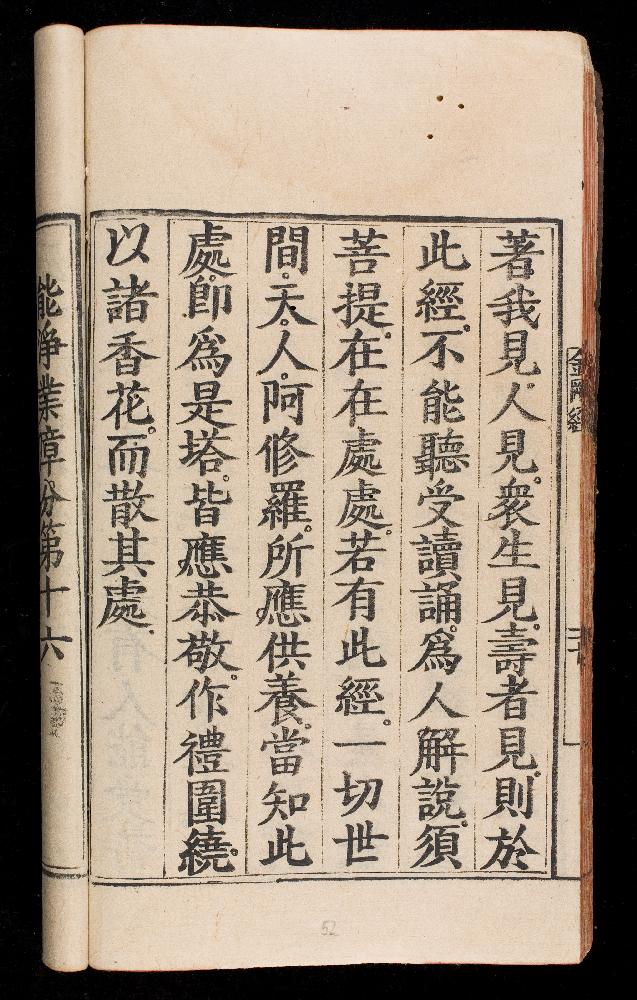 金剛經
著我見。人見。衆生見。壽者見。則於
此經。不能聽受讀誦。爲人解說。須
菩提。在在處處。若有此經。一切世
間。天。人。阿修羅。所應供養。當知此
處。即爲是塔。皆應恭敬。作禮圍繞。
以諸香花。而散其處。
能淨業障分第十六
52